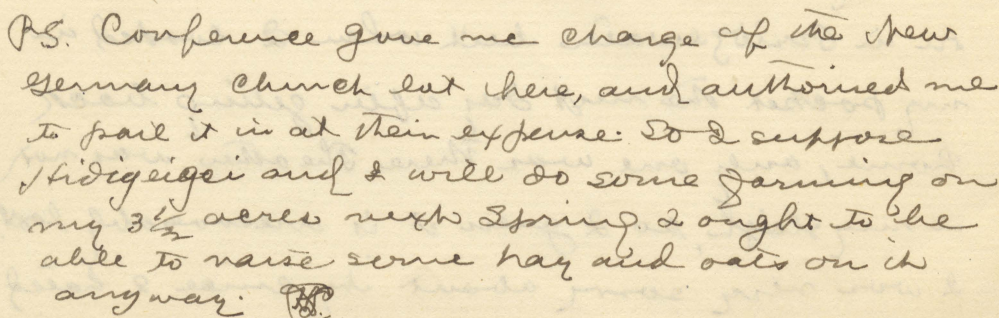 P.S. Conference gave me charge of the New
Germany Church lot here, and authorized me
to pale it in at their expense. So I suppose
Hidigeigei and I will do some farming on
my 3 1/2 acres next Spring. I ought to be
able to raise some hay and oats on it
anyway.